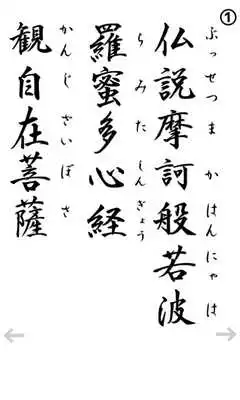 ①
仏説摩訶般若波
ぶっせつまかはんにゃは
羅蜜多心経
らみたしんぎょう
観自在菩薩
かんじざいぼさ